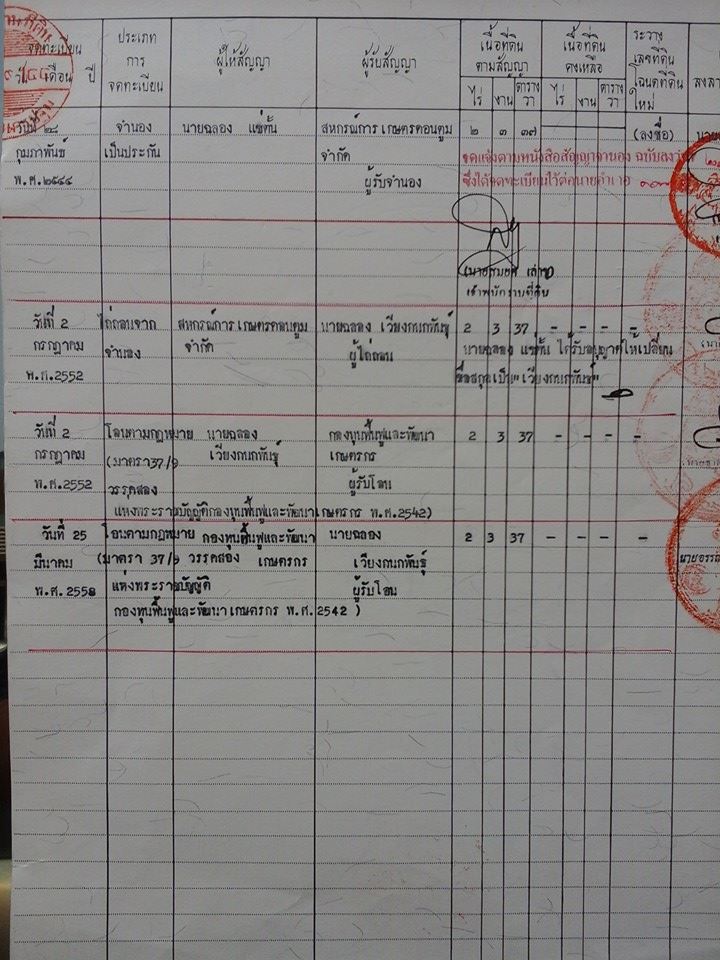 จดทะเบียน
วัน เดือน ปี
ประเภท
การ
จดทะเบียน
ผู้ให้สัญญา
ผู้รับสัญญา
เนื้อที่ดิน
ตามสัญญา
ไร่ งาน ตาราง
วา
เนื้อที่ดิน
คงเหลือ
ไร่ งาน ตาราง
วา
ระวาง
เลขที่ดิน
โฉนดที่ดิน
ใหม่
กุมภาพันธ์
พ.ศ.๒๕๔๔
จำนอง
เป็นประกัน
นายฉลอง แซ่ตั้น
สหกรณ์การเกษตรดอนตูม
จำกัด
ผู้รับจำนอง
๒ ๓ ๓๗
(ลงชื่อ)
จดแจ้งตามหนังสือสัญญาจำนอง ฉบับลงวันที่
ซึ่งได้จดทะเบียนไว้ต่อนายอำเภอ
เจ้าพนักงานที่ดิน
วันที่ 2
กรกฎาคม
พ.ศ.2552
ไถ่ถอนจาก
จำนอง
สหกรณ์การเกษตรดอนตูม
จำกัด
นายฉลอง เวียงกนกพันธุ์
ผู้ไถ่ถอน
2 3 37 - - - -
นายฉลอง แซ่ตั้น ได้รับอนุญาตให้เปลี่ยน
ชื่อสกุลเป็น" เวียงกนกพันธุ์"
วันที่ 2
กรกฎาคม
พ.ศ.2552
โอนตามกฎหมาย
(มาตรา37/9
วรรคสอง
แห่งพระราชบัญญัติกองทุนฟื้นฟูและพัฒนาเกษตรกร พ.ศ.2542)
นายฉลอง
เวียงกนกพันธุ์
กองทุนฟื้นฟูและพัฒนา
เกษตรกร
ผู้รับโอน
2 3 37 - - - -
วันที่ 25
มีนาคม
พ.ศ.2558
โอนตามกฎหมาย
(มาตรา 37/9 วรรคสอง
แห่งพระราชบัญญัติ
กองทุนฟื้นฟูและพัฒนาเกษตรกร พ.ศ.2542 )
กองทุนฟื้นฟูและพัฒนา
เกษตรกร
นายฉลอง
เวียงกนกพันธุ์
ผู้รับโอน
2 3 37 - - - -